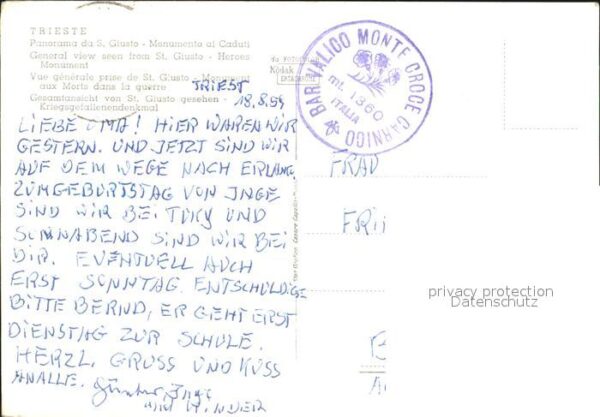 TRIESTE
Panorama da S. Giusto - Monumento ai Caduti
General view seen from St. Giusto - Heroes
Monument
Vue générale prise de St. Giusto - Monument
aux Morts dans la guerre
Gesamtansicht von St. Giusto gesehen -
Kriegsgefallenendenkmal
da
Kodak
EKTACHROME
BAR VALICO MONTE CROCE CARNICO
mt. 1360
ITALIA
TRIEST
18.8.59
LIEBE OMA! HIER WAREN WIR
GESTERN. UND JETZT SIND WIR
AUF DEM WEGE NACH
ZUM GEBURTSTAG VON INGE
SIND WIR BEI UND
SONNABEND SIND WIR BEI
DIR. EVENTUELL AUCH
ERST SONNTAG. ENTSCHULDIGE
BITTE BERND, ER GEHT ERST
DIENSTAG ZUR SCHULE.
HERZL. GRUSS UND KUSS
AN ALLE. Günter, Inge
UND KINDER
FRAU
privacy protection
Datenschutz